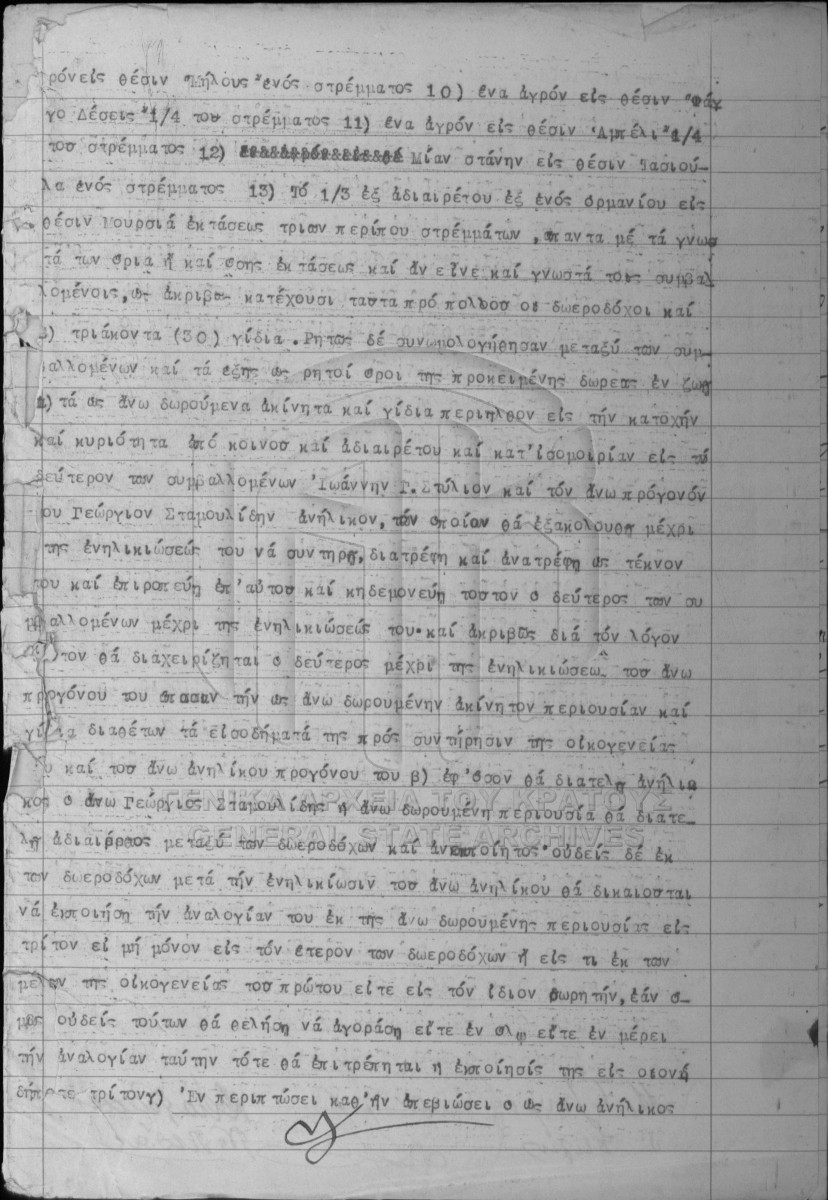 ρόνεἰς θέσιν "Μήλους"ἑνός στρέμματος 10) ἕνα ἀγρόν εἰς θέσιν "Φάγ
γο Δέσεις"1/4 τοῦ στρέμματος 11) ἕνα ἀγρόν εἰς θέσιν 'Αμπέλι"1/4
τοῦ στρέμματος 12) Μίαν στάνην εἰς θέσιν Τασιού-
λα ἑνός στρέμματος 13) Τό 1/3 ἐξ ἀδιαιρέτου ἐξ ἑνός ὁρμανίου εἰς
θέσιν Μουρσιά ἐκτάσεως τριῶν περίπου στρέμμάτων ,ἅπαντα μέ τά γνωσ
τά των ὅρια ἤ καί ὅσης ἐκτάσεως καί ἄν εἶνε καί γνωστά τοῖς συμβαλ
λομένοις,ὡς ἀκριβῶς κατέχουσι ταῦτα πρό πολλοῦ οἱ δωεροδόχοι καί
β) τριάκοντα (30) γίδια .Ρητῶς δέ συνωμολογήθησαν μεταξύ τῶν συμ-
βαλλομένων καί τά ἑξῆς ὡς ρητοί ὅροι τῆς προκειμένης δωρεᾶς ἐν ζωῇ
α)τά ὡς ἄνω δωρούμενα ἀκίνητα καί γίδια περιῆλθον εἰς τήν κατοχήν
καί κυριότητα ἀπό κοινοῦ καί ἀδιαιρέτου καί κατ'ἰσομοιρίαν εἰς τό
δεύτερον τῶν συμβαλλομένων 'Ιωάννην Γ.Στύλιον καί τόν ἄνω πρόγονόν
του Γεώργιον Σταμουλίδην ἀνήλικον,τόν ὁποῖον θά ἐξακολουθῇ μέχρι
τῆς ἐνηλικιώσεώς του νά συντηρῇ,διατρέφῃ καί ἀνατρέφῃ ὡς τέκνον
του καί ἐπιροπεύῃ ἐπ'αὐτοῦ καί κηδεμονεύῃ τοῦτον ὁ δεύτερος τῶν συ
μβαλλομένων μέχρι τῆς ἐνηλικιώσεώς του·καί ἀκριβῶς διά τόν λόγον
τοῦτον θά διαχειρίζηται ὁ δεύτερος μέχρι τῆς ἐνηλικιώσεως τοῦ ἄνω
προγόνου του ἅπασαν τήν ὡς ἄνω δωρουμένην ἀκίνητον περιουσίαν καί
γίδια διαθέτων τά εἰσοδήματά της πρός συντήρησιν τῆς οἰκογενείας
του καί τοῦ ἄνω ἀνηλίκου προγόνου του β) ἐφ'ὅσον θά διατελῇ ἀνήλι
κος ὁ ἄνω Γεώργιος Σταμουλίδης ἡ ἄνω δωρουμένη περιουσία θά διατε-
λῇ ἀδιαίρετος μεταξύ τῶν δωεροδόχων καί ἀνεκποίητος·οὐδείς δέ ἐκ
τῶν δωεροδόχων μετά τήν ἐνηλικίωσιν τοῦ ἄνω ἀνηλίκου θά δικαιοῦται
νά ἐκποιήσῃ τήν ἀναλογίαν του ἐκ τῆς ἄνω δωρουμένης περιουσίας εἰς
τρίτον εἰ μή μόνον εἰς τόν ἕτερον τῶν δωεροδόχων ἤ εἰς τι ἐκ τῶν
μελῶν τῆς οἰκογενείας τοῦ πρώτου εἴτε εἰς τόν ἴδιον δωρητήν,ἐάν ὅ-
μως οὐδείς τούτων θά θελήσῃ νά ἀγοράσῃ εἴτε ἐν ὅλῳ εἴτε ἐν μέρει
τήν ἀναλογίαν ταύτην τότε θά ἐπιτρέπηται ἡ ἐκποίησίς της εἰς οἱονδ
δήποτε τρίτονγ) 'Εν περιπτώσει καθ'ἥν ἀπεβιώσει ὁ ὡς ἄνω ἀνήλικος
ΓΕΝΙΚΑ ΑΡΧΕΙΑ ΤΟΥ ΚΡΑΤΟΥΣ
GENERAL STATE ARCHIVES